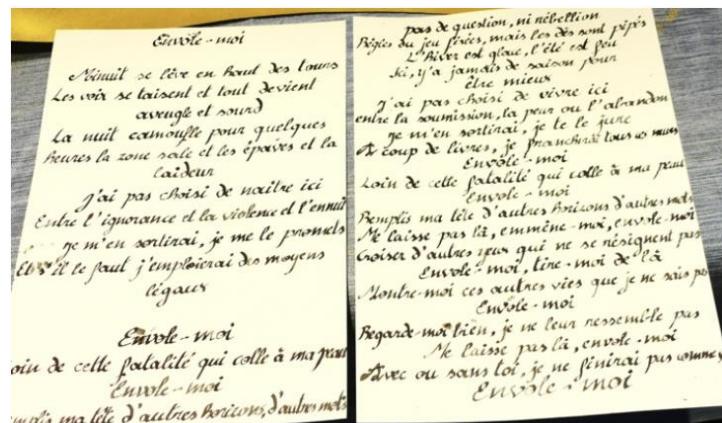 Envole-moi
Minuit se lève en haut des tours
Les voix se taisent et tout devient
aveugle et sourd
La nuit camoufle pour quelques
heures la zone sale et les épaves et la
laideur
J'ai pas choisi de naître ici
Entre l'ignorance et la violence et l'ennui
Je m'en sortirai, je me le promets
Et s'il le faut j'emploierai des moyens
légaux
Envole-moi
Loin de cette fatalité qui colle à ma peau
Envole-moi
Remplis ma tête d'autres horizons, d'autres mots
pas de question, ni rébellion
Règles du jeu fixées, mais les dés sont pipés
L'hiver est glace, l'été est feu
Ici, y'a jamais de saison pour
être mieux
J'ai pas choisi de vivre ici
entre la soumission, la peur ou l'abandon
Je m'en sortirai, je te le jure
A coup de livres, je franchirai tous ces murs
Envole-moi
Loin de cette fatalité qui colle à ma peau
Envole-moi
Remplis ma tête d'autres horizons, d'autres mots
Me laisse pas là, emmène-moi, envole-moi
Croiser d'autres yeux qui ne se résignent pas
Envole-moi, tire-moi de là
Montre-moi ces autres vies que je ne sais pas
Envole-moi
Regarde-moi bien, je ne leur ressemble pas
Me laisse pas là, envole-moi
Avec ou sans toi, je ne finirai pas comme
Envole-moi